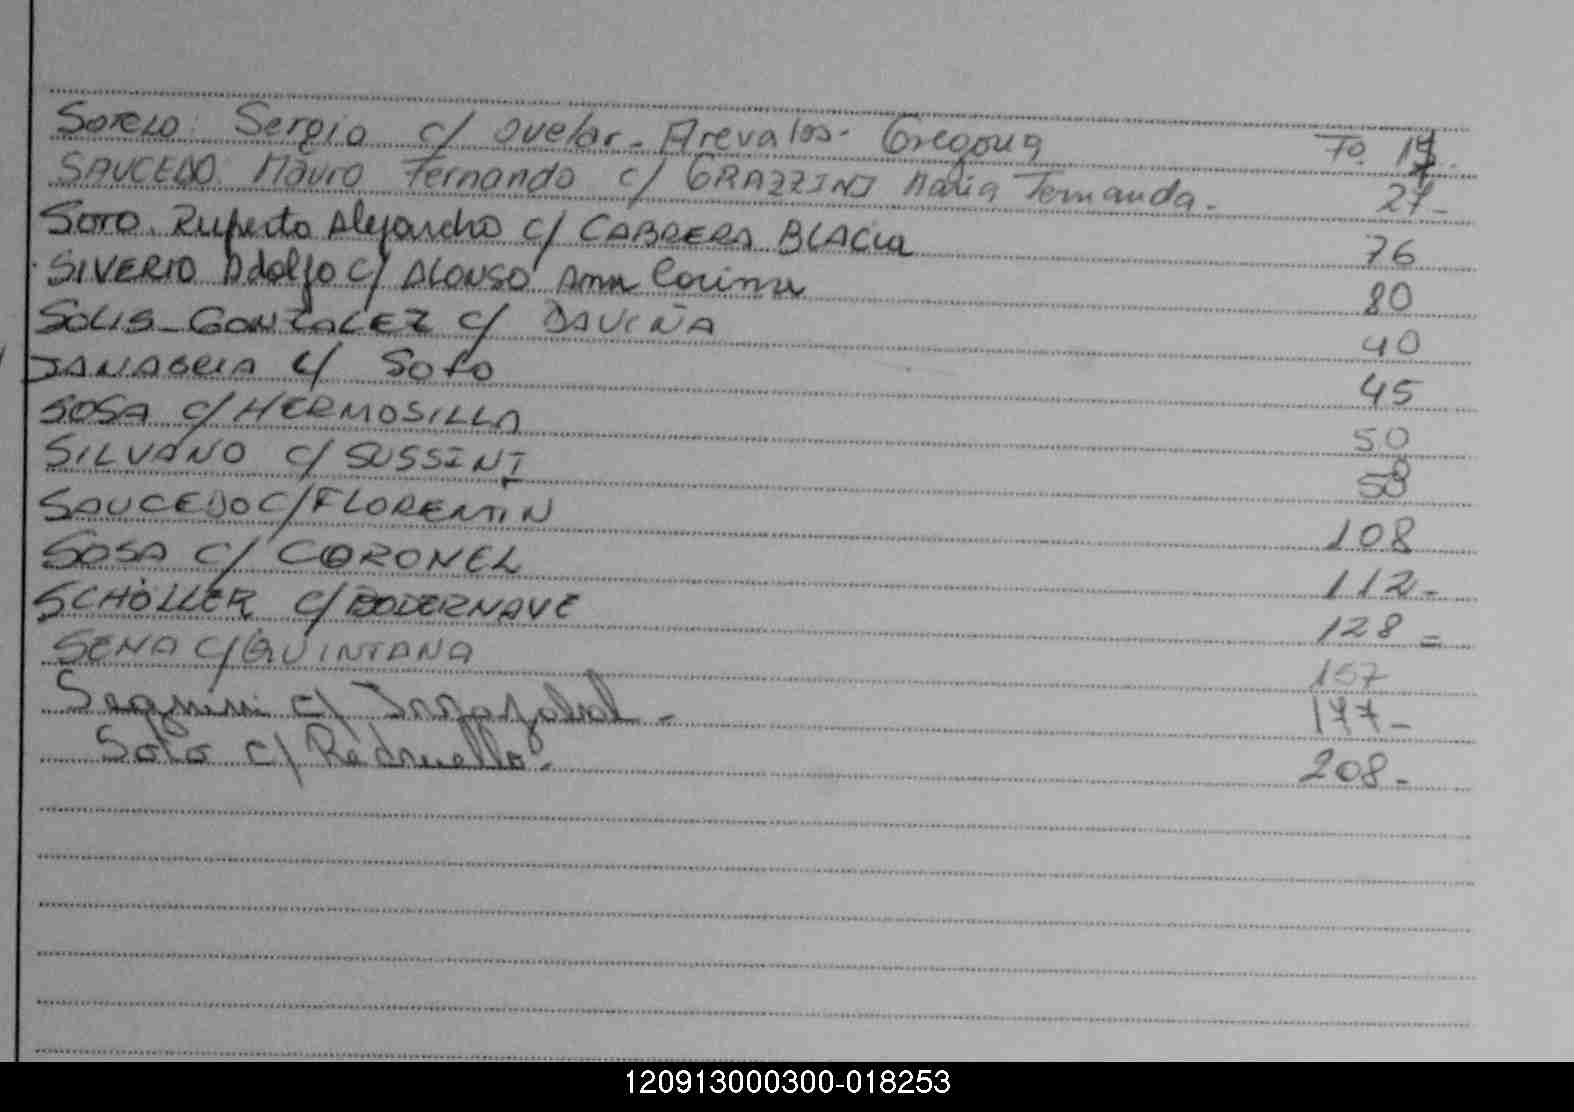 Sotelo Sergio c/ Ovelar - Arevalos - Gregoria Fo. 17
SAUCEDO Mauro Fernando c/ GRAZZINI Maria Fernanda - 27-
SOTO. Ruperto Alejandro c/ CABRERA BLACIA 76
SIVERIO Adolfo c/ ALONSO Ana Corina 80
SOLIS - GONZALEZ c/ DAVIÑA 40
SANABRIA c/ Soto 45
SOSA c/ HERMOSILLA 50
SILVANO c/ SUSSINI 58
SAUCEDO C/ FLORENTIN 108
SOSA C/ CORONEL 112-
SCHÖLLER c/ BODERNAVE 128 =
SENA C/ QUINTANA 157
Segnini c/ 177-
Soto c/ 208-
120913000300-018253